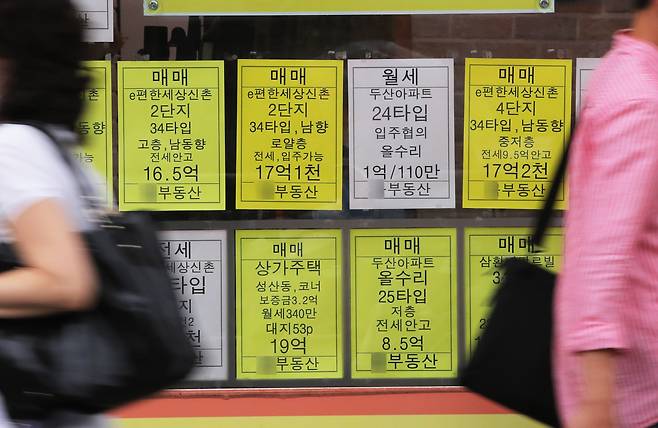 매매
e편한세상신촌
2단지
34타입
고층, 남동향
전세안고
16.5억
부동산
매매
e편한세상신촌
2단지
34타입, 남향
로얄층
전세, 입주가능
17억1천
부동산
월세
두산아파트
24타입
입주협의
올수리
1억/110만
부동산
매매
e편한세상신촌
4단지
34타입, 남동향
중저층
전세9.5억안고
17억2천
부동산
전세
세상신촌
타입
부동산
매매
상가주택
성산동, 코너
보증금3.2억
월세340만
대지53p
19억
부동산
매매
두산아파트
올수리
25타입
저층
전세안고
8.5억
부동산
매매